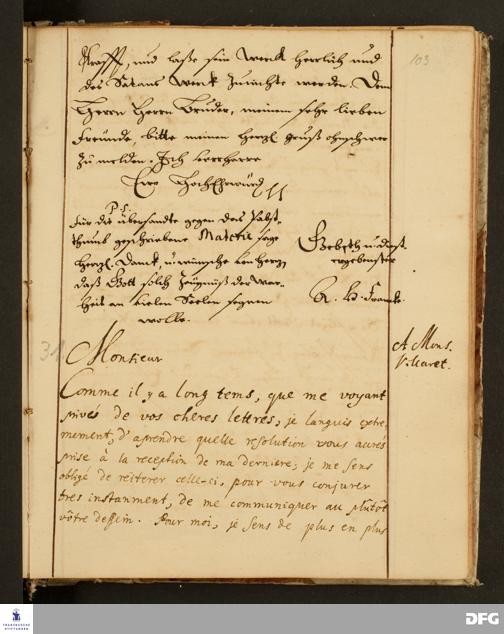 103
Krafft, und laße sein Werck herrlich und
des Satans Werck zunichte werden. Dem
Herrn Herrn Bruder, meinem sehr lieben
Freunde, bitte meinen hertzl. gruß ohnschwer
zu melden. Ich verharre
Ew. HochEhrwürd.
P.S.
für die übersandte gegen das Pabst-
thum geschriebene Materie sage
hertzl. Danck, u. wünsche von Hertzen
daß Gott solch Zeugniß der War-
heit an vielen Seelen segnen
wolle.
Gebeth u. dienst
ergebenster
A. H. Francke.
31
Monsieur
A Mons.
Villaret.
Comme il y a long tems, que me voyant
privé de vos cheres lettres, je languis extre-
mement, d'aprendre quelle resolution vous aurés
prise à la reception de ma derniere; je me sens
obligé de reiterer celle-ci, pour vous conjurer
tres instanment, de me communiquer au plûtôt
vôtre dessein. Pour moi, je sens de plus en plus
FRANCKESCHE
STIFTUNGEN
DFG